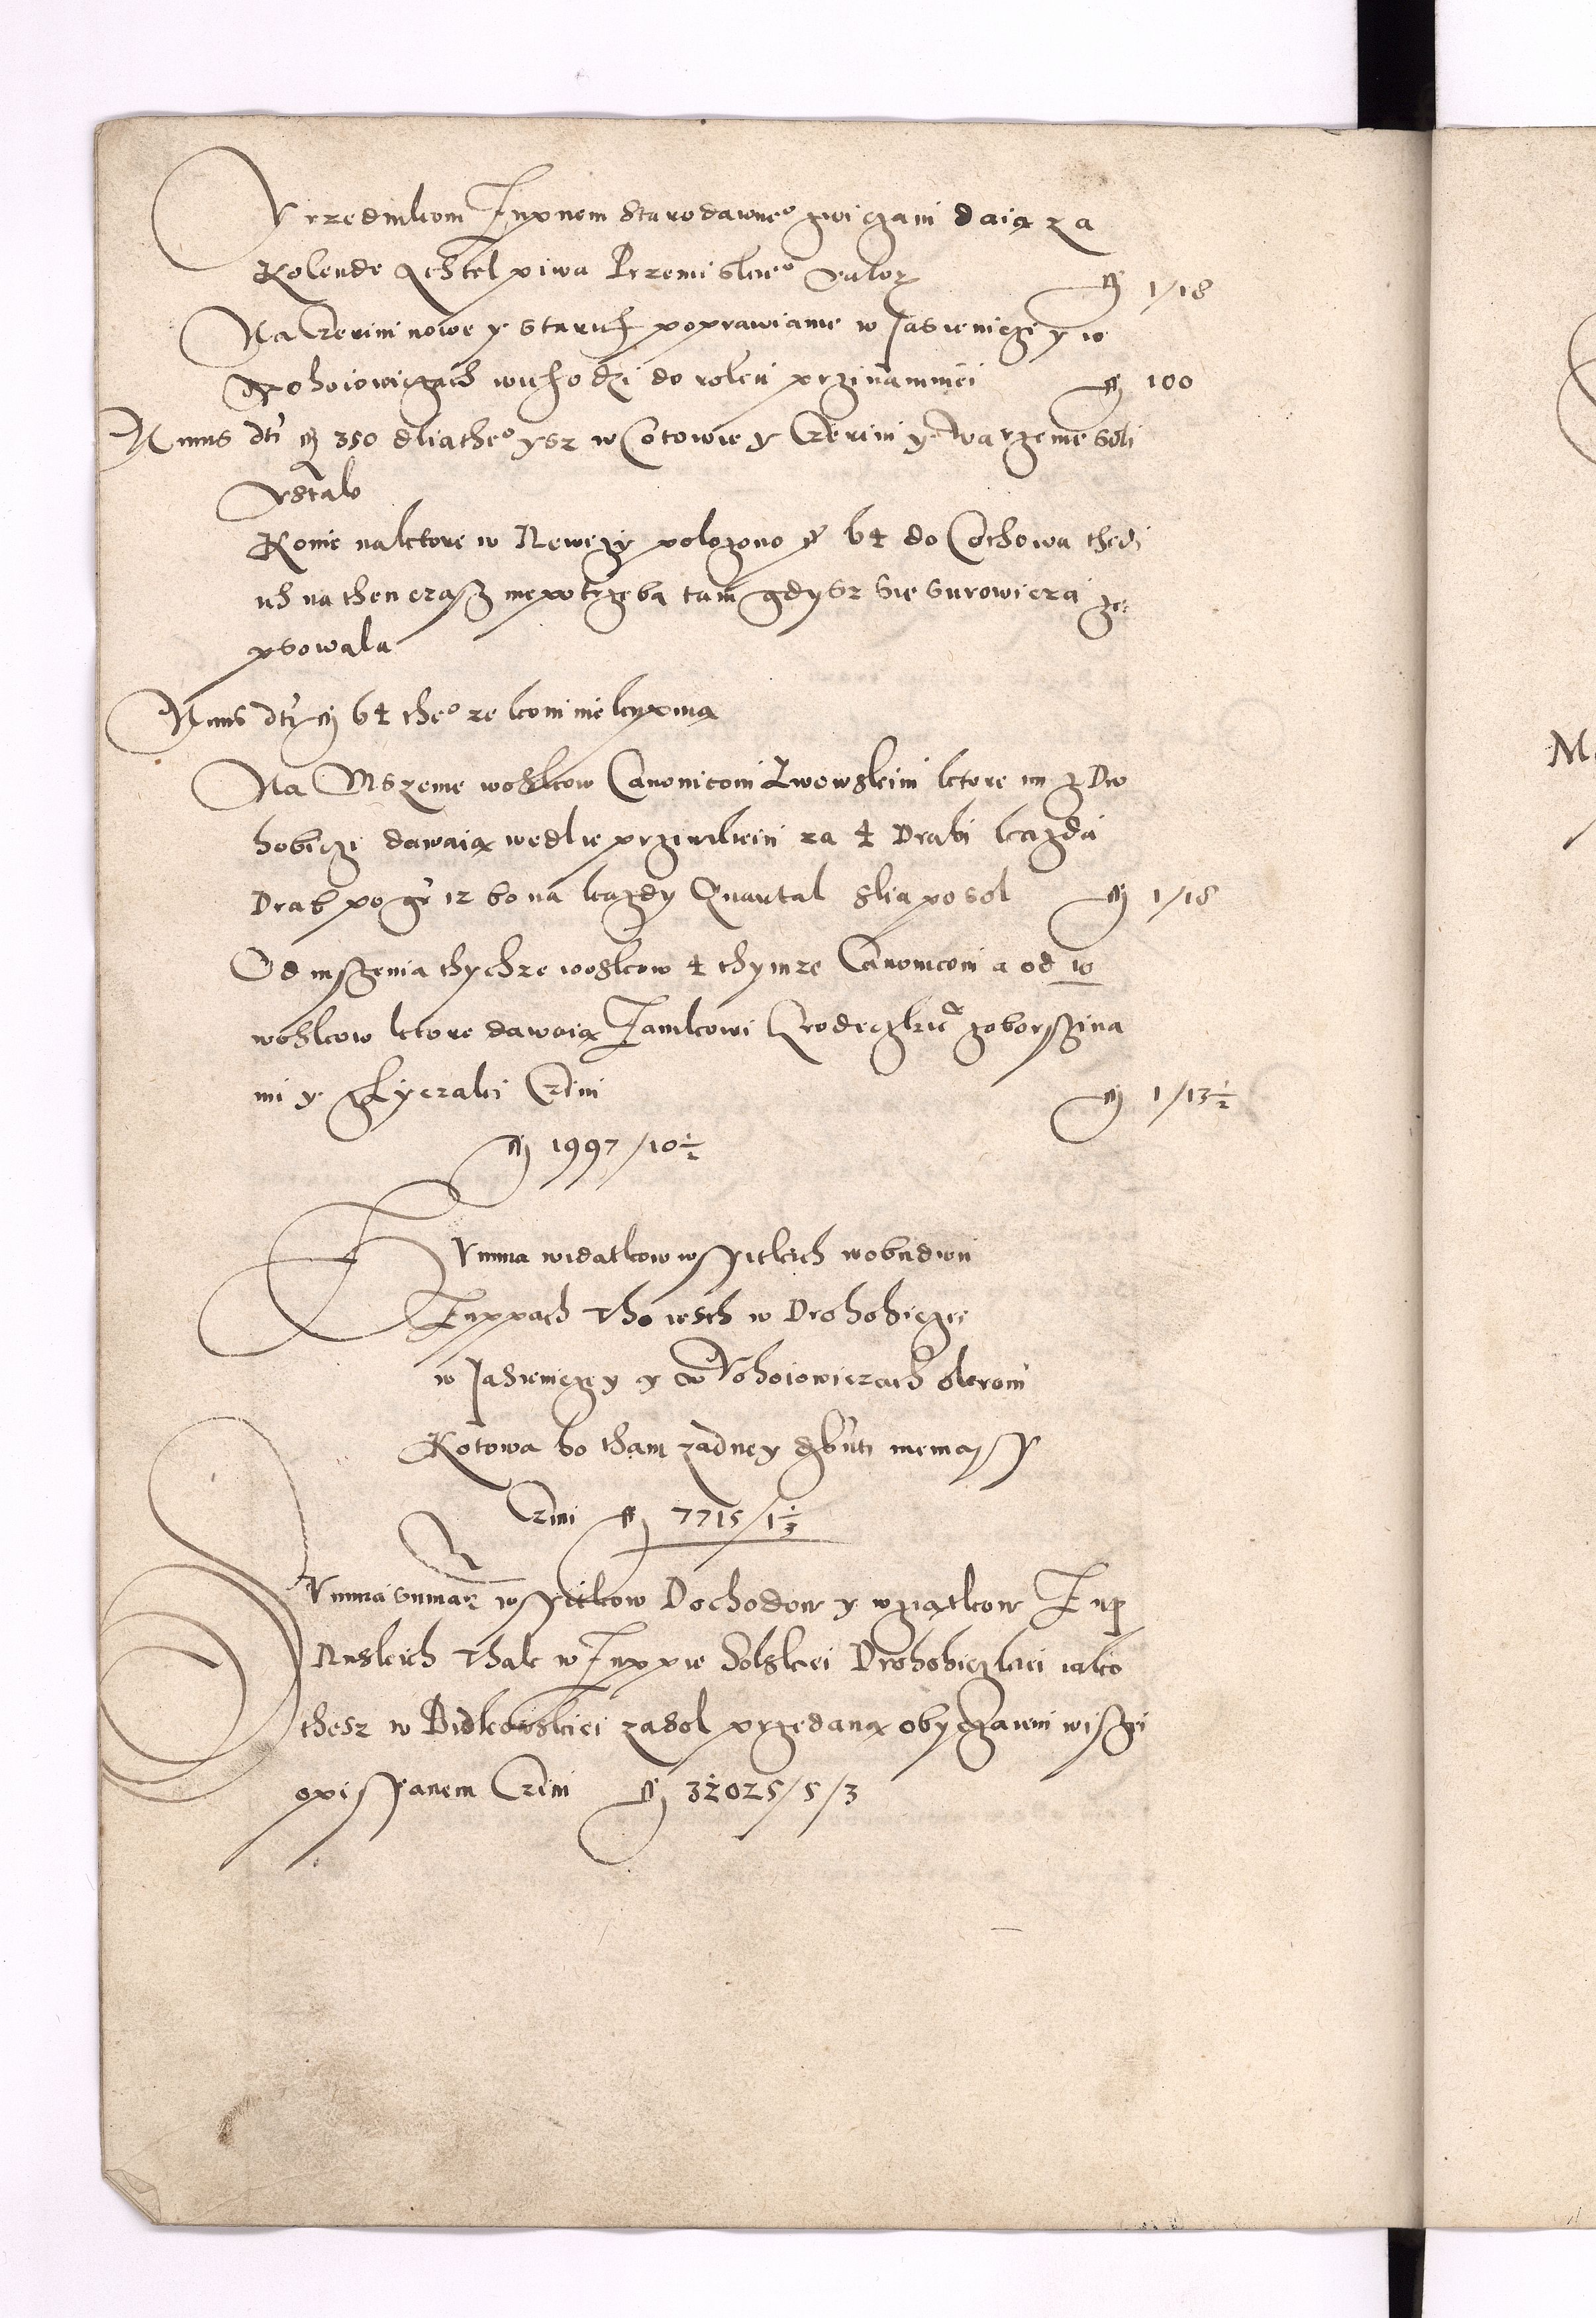 Vrzednikom Zupnem starodawne° zwiczaiu daią za
Kolende Achtel piwa Przemiskie° valor fl 1/18
Na Czerini nowe y starich poprawianie w Jasieniczi y w
Pohoiowiczach wichodzi do rokui przinammei fl 100
Minus dti fl 350 dliathe° ysz w Cotowie y Czerini y Warzenie soli
vstalo
Konie naktore w Newezy polozono fl 64 do Cothowa thedi
ich na then czasz niepotrzeba tam gdysz sie surowicza ze
psowala
Minus dti fl 64 the° ze koni nie kupuią
Na Mszenie woskow Canonicom Lwowskim ktore im z Dro
hobicze dawaią wedlie prziwileiu za 4 Drabi kazdi
Drab po gr 12 bo na kazdy Quartal slia po sol fl 1/18
Od mszenia thychze woskow 4 thymze Canonicom a od 10
woskow ktore dawaią Zamkowi Grodeczkie° zoborszina
mi y z Lyczaki Czini fl 1/13½
fl 1997/10½
Summa widatkow wszitkich wobudwu
Zuppach Tho iesth w Drohobiczei
w Jasieniczy y w Pohoiowiczach okrom
Kotowa bo tham zadney zbuti niemasz
Czini fl 7715/1⅓
Summa summar wszitkow Dochodow y wziątkow Zup
Ruskich Thak w Zuppie Solskiei Drohobiczkiei iako
thesz w Bidkowskiei za sol przedaną obyczaiem wiszei
opiszanem Czini fl 32025/5/3
M